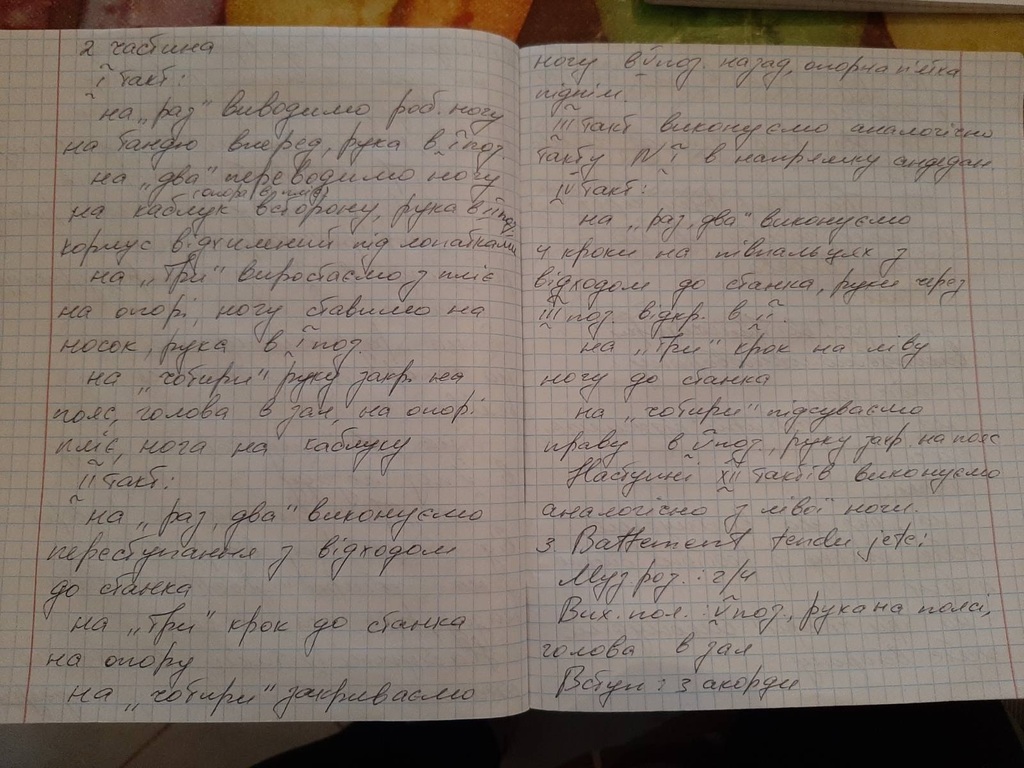 2 частина
I такт:
на „раз" виводимо роб. ногу
на тандю вперед, рука в I поз.
на „два" переводимо ногу
(опора в пліє)
на каблук в сторону, рука в II поз,
корпус відхилений під лопатками
на „три" виростаємо з пліє
на опорі, ногу ставимо на
носок, рука в I поз.
на „чотири" руку закр. на
пояс, голова в зал, на опорі
пліє, нога на каблуку
II такт:
на „раз, два" виконуємо
переступання з відходом
до станка
на „три" крок до станка
на опору
на „чотири" закриваємо
ногу в V поз. назад, опорна п'ятка
піднім.
III такт виконуємо аналогічно
такту N I в напрямку андедан.
IV такт:
на „раз, два" виконуємо
4 кроки на півпальцях з
відходом до станка, руки через
III поз. відкр. в II.
на „три" крок на ліву
ногу до станка
на „чотири" підсуваємо
праву в V поз, руку закр. на пояс
Наступні XII тактів виконуємо
аналогічно з лівої ноги.
3 Battement tendu jete:
Муз роз. : 2/4
Вих. пол. : V поз., рука на поясі,
голова в зал
Вступ : 3 акорди